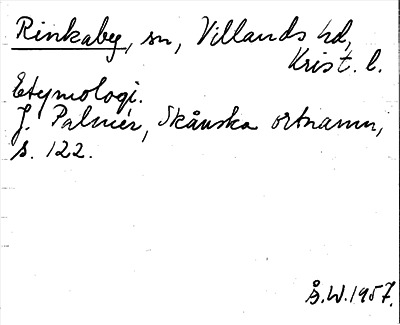 Rinkaby, sn, Villands hd,
Krist. l.
Etymologi.
J. Palmér, Skånska ortnamn,
s. 122.
Å.W. 1957.